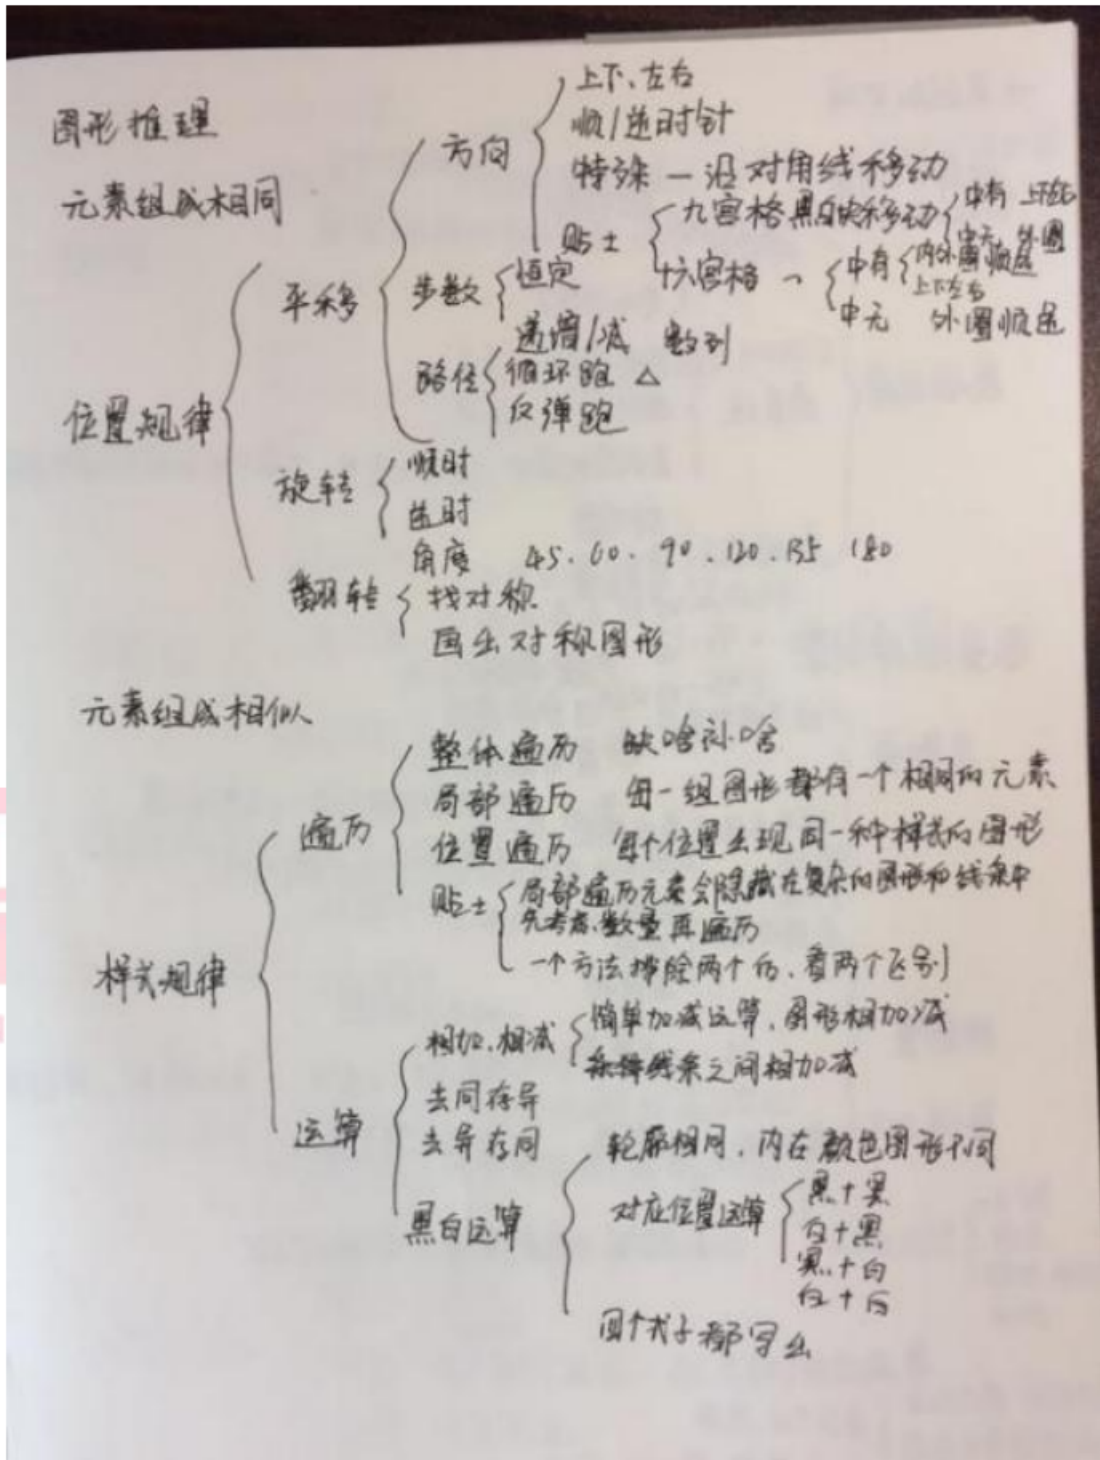 图形推理
元素组成相同
位置规律
平移
方向
上下、左右
顺/逆时针
特殊 — 沿对角线移动
贴士
九宫格黑白块移动
中有 上下左右
中无 外圈
十六宫格
中有
内外圈顺逆
上下左右
中无 外圈顺逆
步数
恒定
递增/减 数列
路径
循环跑 △
反弹跑
旋转
顺时
逆时
角度 45. 60. 90. 120. 135 180
翻转
找对称
画出对称图形
元素组成相似
样式规律
遍历
整体遍历 缺啥补啥
局部遍历 每一组图形都有一个相同的元素
位置遍历 每个位置出现同一种样式的图形
贴士
局部遍历元素会隐藏在复杂的图形和线条中
先考虑数量再遍历
一个方法排除两个的、看两个区别
运算
相加、相减
简单加减运算、图形相加减
线条之间相加减
去同存异
去异存同
黑白运算
轮廓相同、内在颜色图形不同
对应位置运算
黑+黑
白+黑
黑+白
白+白
四个式子都写出